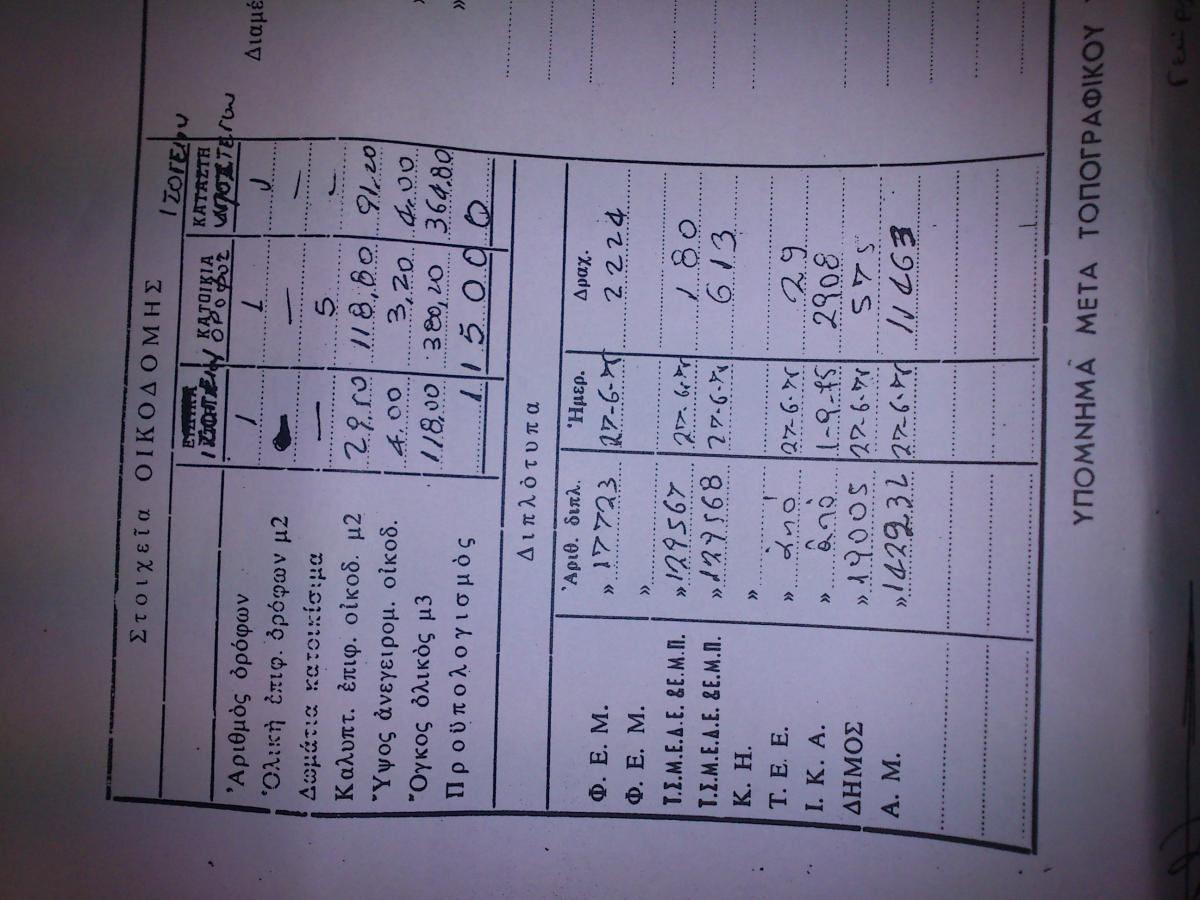 Στοιχεῖα ΟΙΚΟΔΟΜΗΣ
ΙΣΟΓΕΙΟΥ
ΚΑΤΟΙΚΙΑ ΚΑΤΑΣΤΗ
ΟΡΟΦΟΣ
Ἀριθμὸς ὀρόφων 1 1 1
Ὁλικὴ ἐπιφ. ὀρόφων μ2 — —
Δωμάτια κατοικίσιμα — 5 —
Καλυπτ. ἐπιφ. οἰκοδ. μ2 29.50 118,80 91,20
Ὕψος ἀνεγειρομ. οἰκοδ. 4.00 3,20 4.00
Ὄγκος ὁλικὸς μ3 118.00 380,20 364.80
Προϋπολογισμὸς 115000
Διπλότυπα
Ἀριθ. διπλ. Ἡμερ. Δραχ.
Φ. Ε. Μ. » 17723 27-6-75 2224
Φ. Ε. Μ. »
Τ.Σ.Μ.Ε.Δ.Ε. & Ε.Μ.Π. » 129567 27-6-75 180
Τ.Σ.Μ.Ε.Δ.Ε. & Ε.Μ.Π. » 129568 27-6-75 613
Κ. Η. »
Τ. Ε. Ε. » ἀπό 27-6-75 29
Ι. Κ. Α. » ἀπὸ 1-9-75 2908
ΔΗΜΟΣ » 19005 27-6-75 575
Α. Μ. » 142232 27-6-75 11463
ΥΠΟΜΝΗΜΑ ΜΕΤΑ ΤΟΠΟΓΡΑΦΙΚΟΥ